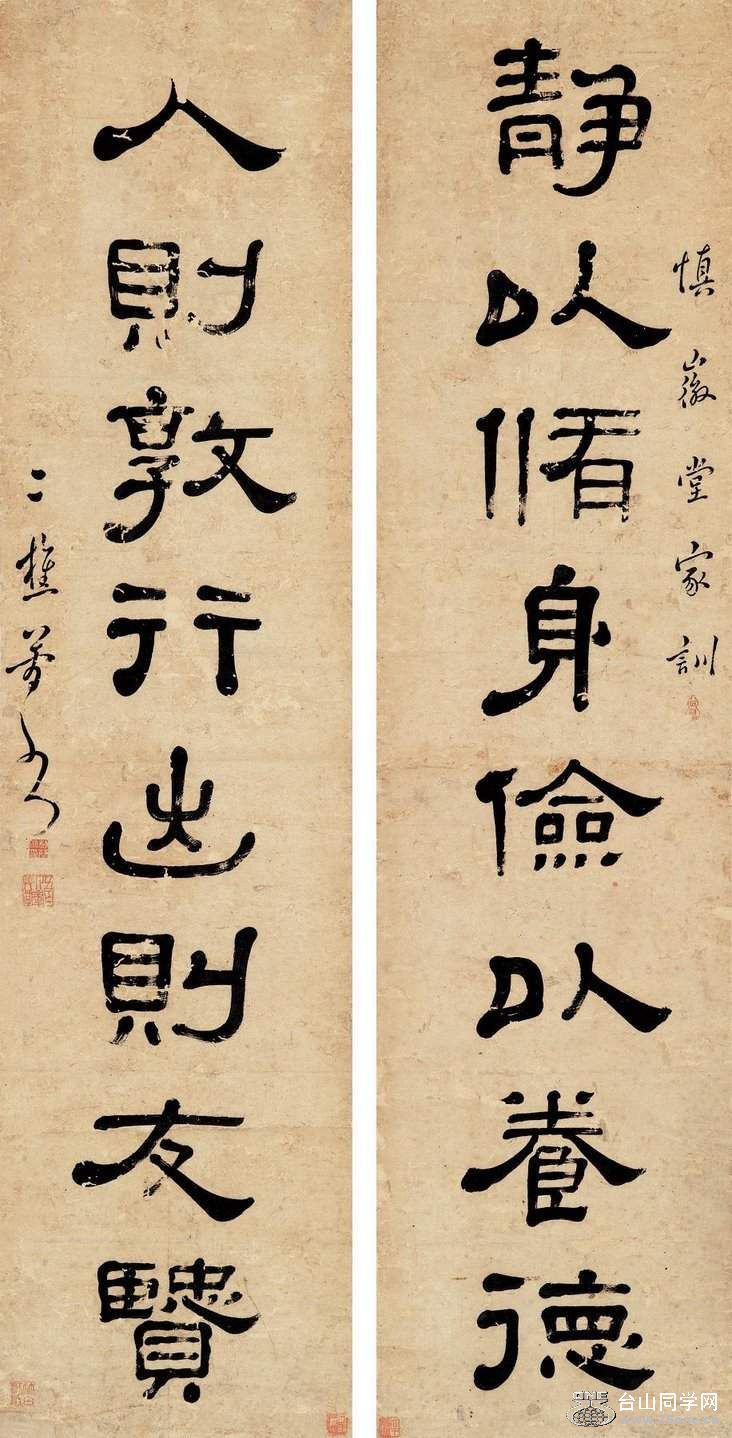 慎徽堂家訓
靜以脩身儉以養德
入則敦行出則友贒
二樵
ONE
台山同学网